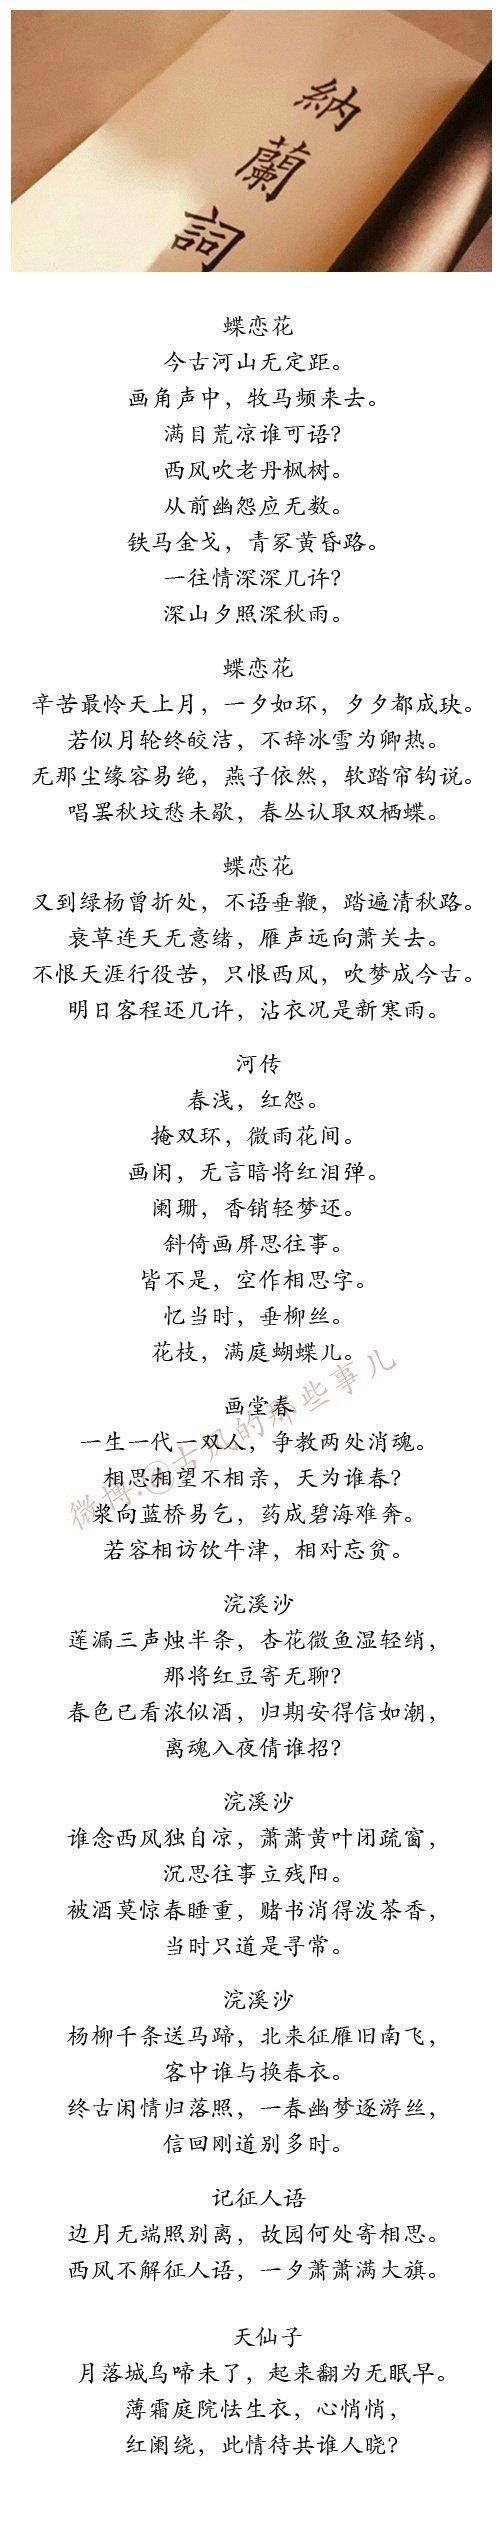 納
蘭
詞
蝶恋花
今古河山无定距。
画角声中，牧马频来去。
满目荒凉谁可语？
西风吹老丹枫树。
从前幽怨应无数。
铁马金戈，青冢黄昏路。
一往情深深几许？
深山夕照深秋雨。
蝶恋花
辛苦最怜天上月，一夕如环，夕夕都成玦。
若似月轮终皎洁，不辞冰雪为卿热。
无那尘缘容易绝，燕子依然，软踏帘钩说。
唱罢秋坟愁未歇，春丛认取双栖蝶。
蝶恋花
又到绿杨曾折处，不语垂鞭，踏遍清秋路。
衰草连天无意绪，雁声远向萧关去。
不恨天涯行役苦，只恨西风，吹梦成今古。
明日客程还几许，沾衣况是新寒雨。
河传
春浅，红怨。
掩双环，微雨花间。
画闲，无言暗将红泪弹。
阑珊，香销轻梦还。
斜倚画屏思往事。
皆不是，空作相思字。
忆当时，垂柳丝。
花枝，满庭蝴蝶儿。
画堂春
一生一代一双人，争教两处消魂。
相思相望不相亲，天为谁春？
浆向蓝桥易乞，药成碧海难奔。
若容相访饮牛津，相对忘贫。
微博:@古风的那些事儿
浣溪沙
莲漏三声烛半条，杏花微鱼湿轻绡，
那将红豆寄无聊？
春色已看浓似酒，归期安得信如潮，
离魂入夜倩谁招？
浣溪沙
谁念西风独自凉，萧萧黄叶闭疏窗，
沉思往事立残阳。
被酒莫惊春睡重，赌书消得泼茶香，
当时只道是寻常。
浣溪沙
杨柳千条送马蹄，北来征雁旧南飞，
客中谁与换春衣。
终古闲情归落照，一春幽梦逐游丝，
信回刚道别多时。
记征人语
边月无端照别离，故园何处寄相思。
西风不解征人语，一夕萧萧满大旗。
天仙子
月落城乌啼未了，起来翻为无眠早。
薄霜庭院怯生衣，心悄悄，
红阑绕，此情待共谁人晓？